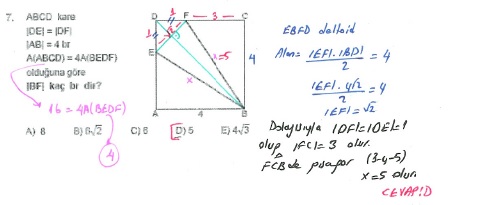 7. ABCD kare
|DE| = |DF|
|AB| = 4 br
A(ABCD) = 4A(BEDF)
olduğuna göre
|BF| kaç br dir?
16 = 4A(BEDF)
4
A) 8 B) 6√2 C) 6 D) 5 E) 4√3
D 1 F 3 C
1
E
x=5
x
4
A 4 B
EBFD dalloid
Alan= |EF|.|BD| / 2 = 4
|EF|.4√2 / 2 = 4
|EF|=√2
Dolayısıyla |DF|=|DE|=1
olup |FC|=3 olur.
FCB de pisagor (3-4-5)
x=5 olur.
CEVAP:D